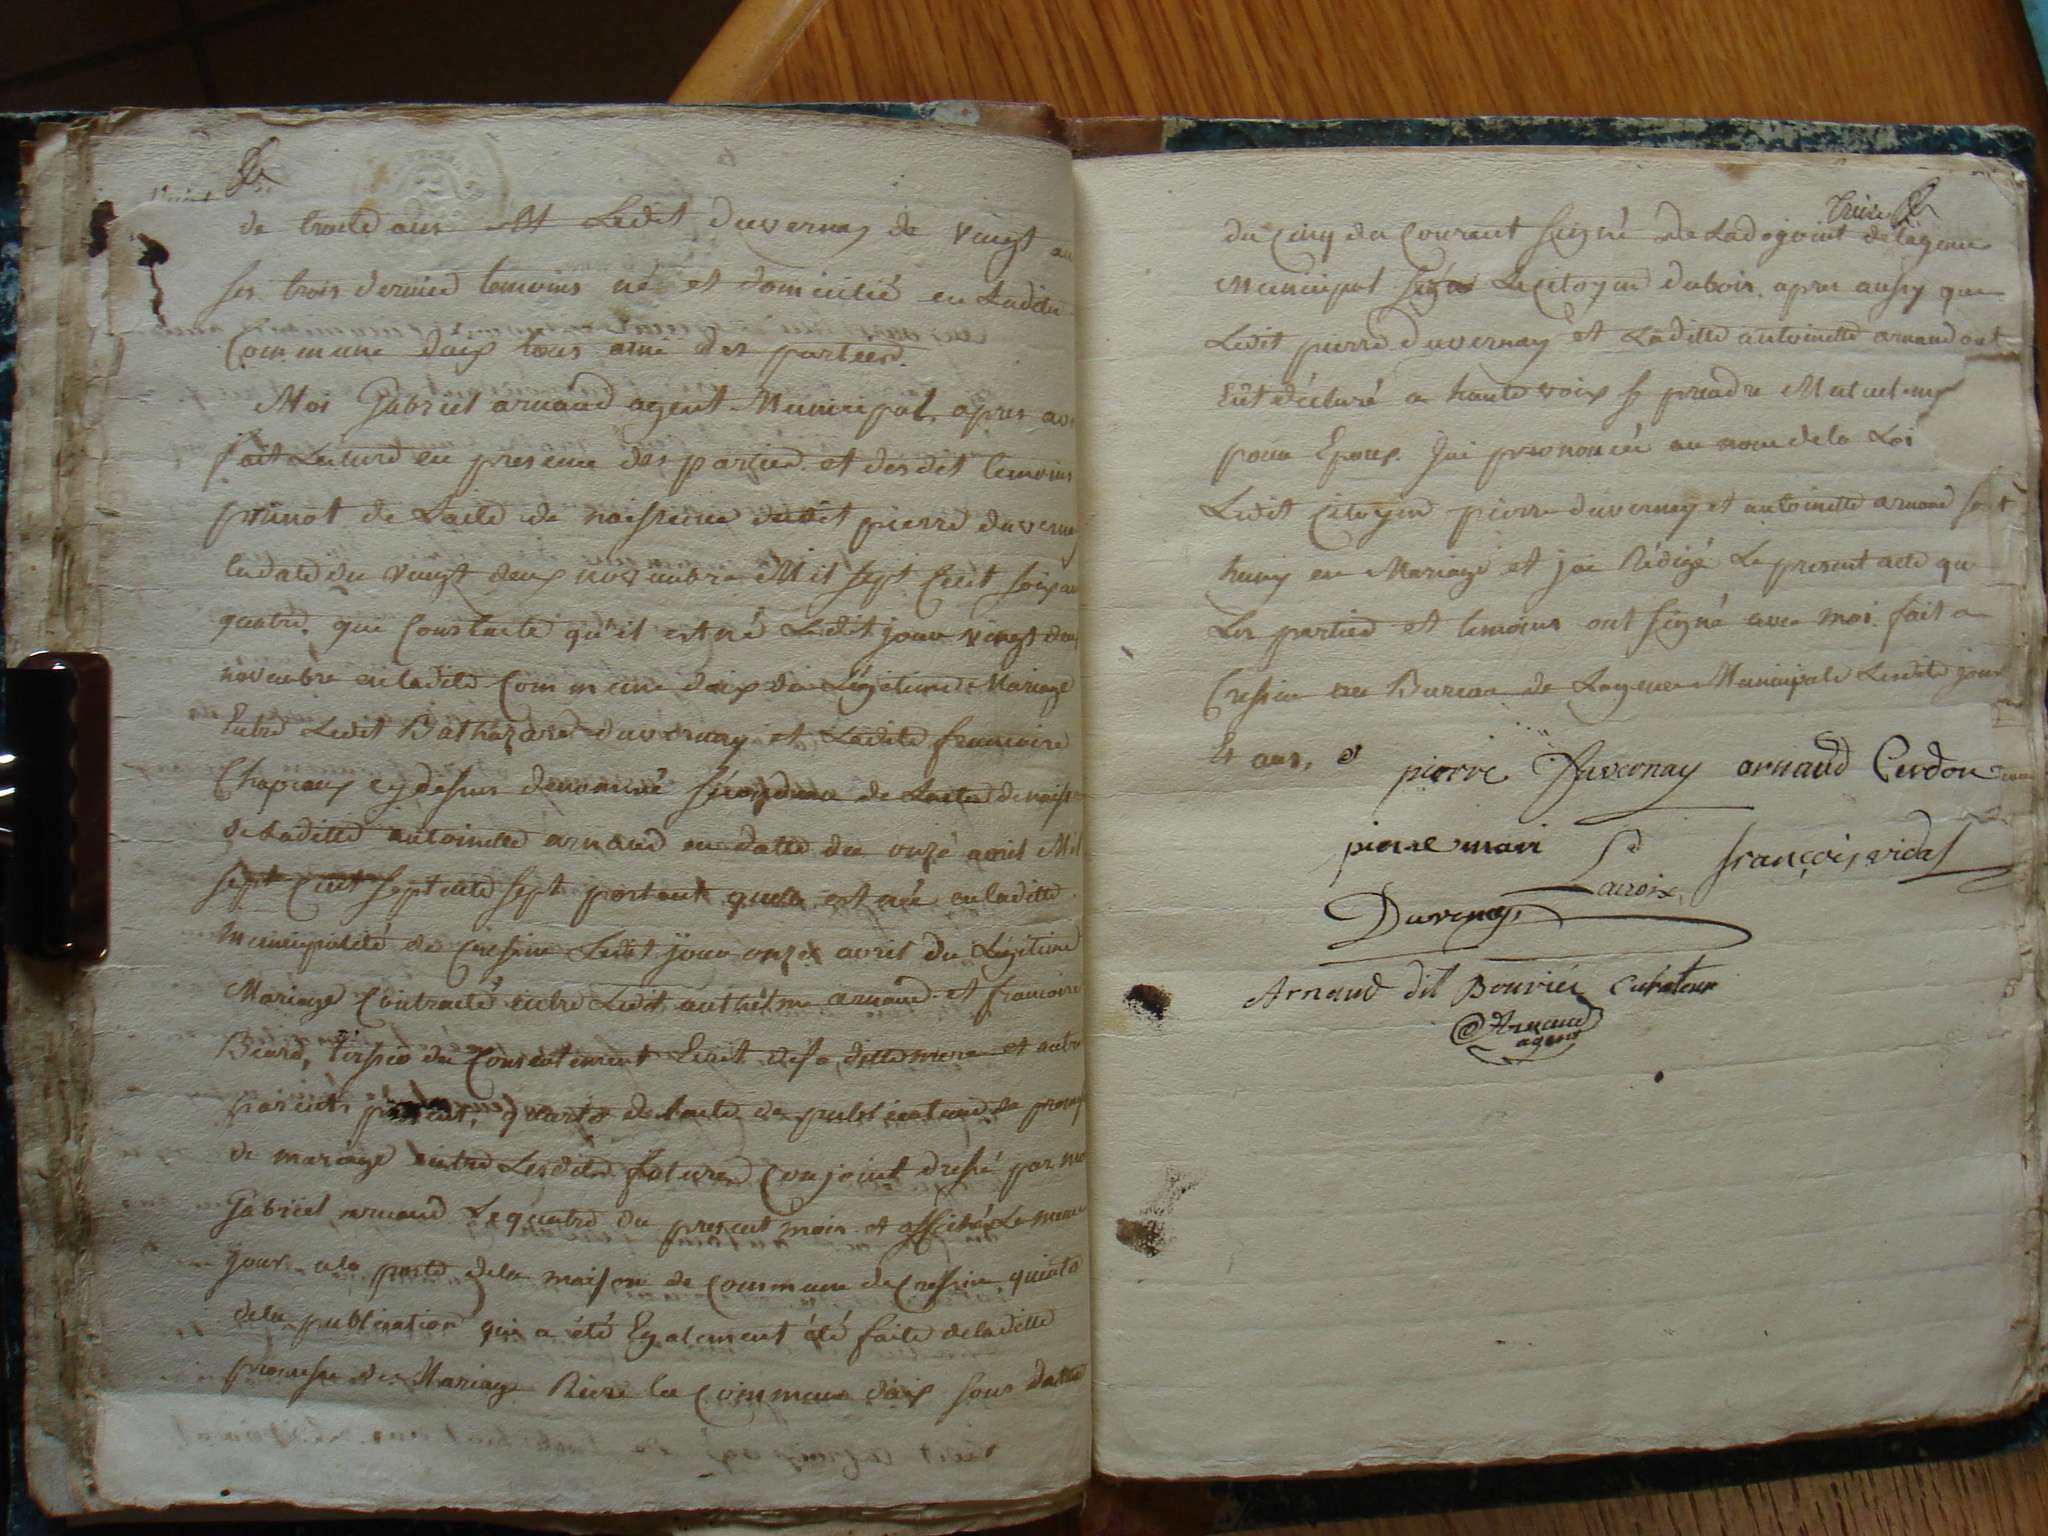 de trente ans Et Ledit duvernay de vingt
ses trois dernier temoins né et domicilié en Ladite
Commune daix tous ami des parties.
Moi Gabriel arnaud agent Municipal, apres
fait Lecture en presence des parties et desdit temoins
primot de Lacte de naissence dudit pierre duvernay
en date du vingt deux novembre Mil sept Cent
quatre, qui Constate qu'il est né Ledit jour vingt deux
novembre en ladite Commune daix du Légetime Mariage
Entre Ledit Bathazard duvernay et Ladite francoise
Chapeaux cy dessus denommé sécondmo de Lacte de
de Laditte antoinette arnaud en datte du onze avril Mil
sept Cent septente sept portant quelle est née en laditte
Municipalité de Cressin Ledit jour onze avril du Légitime
Mariage Contracté entre Ledit anthelme arnaud et francoise
Béard, Tersio du Consentement Ecrit de sa ditte mere et autre
parents quarto de lacte de publication de
de mariage entre Lesdits futures Conjoint dressé par moi
Gabriel arnaud Le quatre du present mois et affiché Le meme
jour a la porte de la maison de Commune de Cressin quinto
de la publication qui a été Egalement été faite de laditte
promesse de Mariage Rière la Commune daix sous datte
Treize
du Cinq du Courant Signé de Ladegoint de lagence
Municipal Le Citoyen dubois apres aussy que
Ledit pierre duvernay et Laditte antoinette arnaud ont
Eut déclaré a haute voix se prendre Mutuelment
pour Epoux. Jai prononcée au nom de la Loi
Ledit Citoyen pierre duvernay et antoinette arnaud sont
huny en Mariage et jai Rédigé Le present acte que
Les parties et temoins ont signé avec moi fait a
Cressin au Bureau de Lagence Municipale Lesdits jour
& ans,
pierre Duvernay arnaud Cerdon
pierre mari Ld Lacroix, françois vidal
Duvernay,
Arnaud dit Bouvier Curateur
G Arnaud
agent